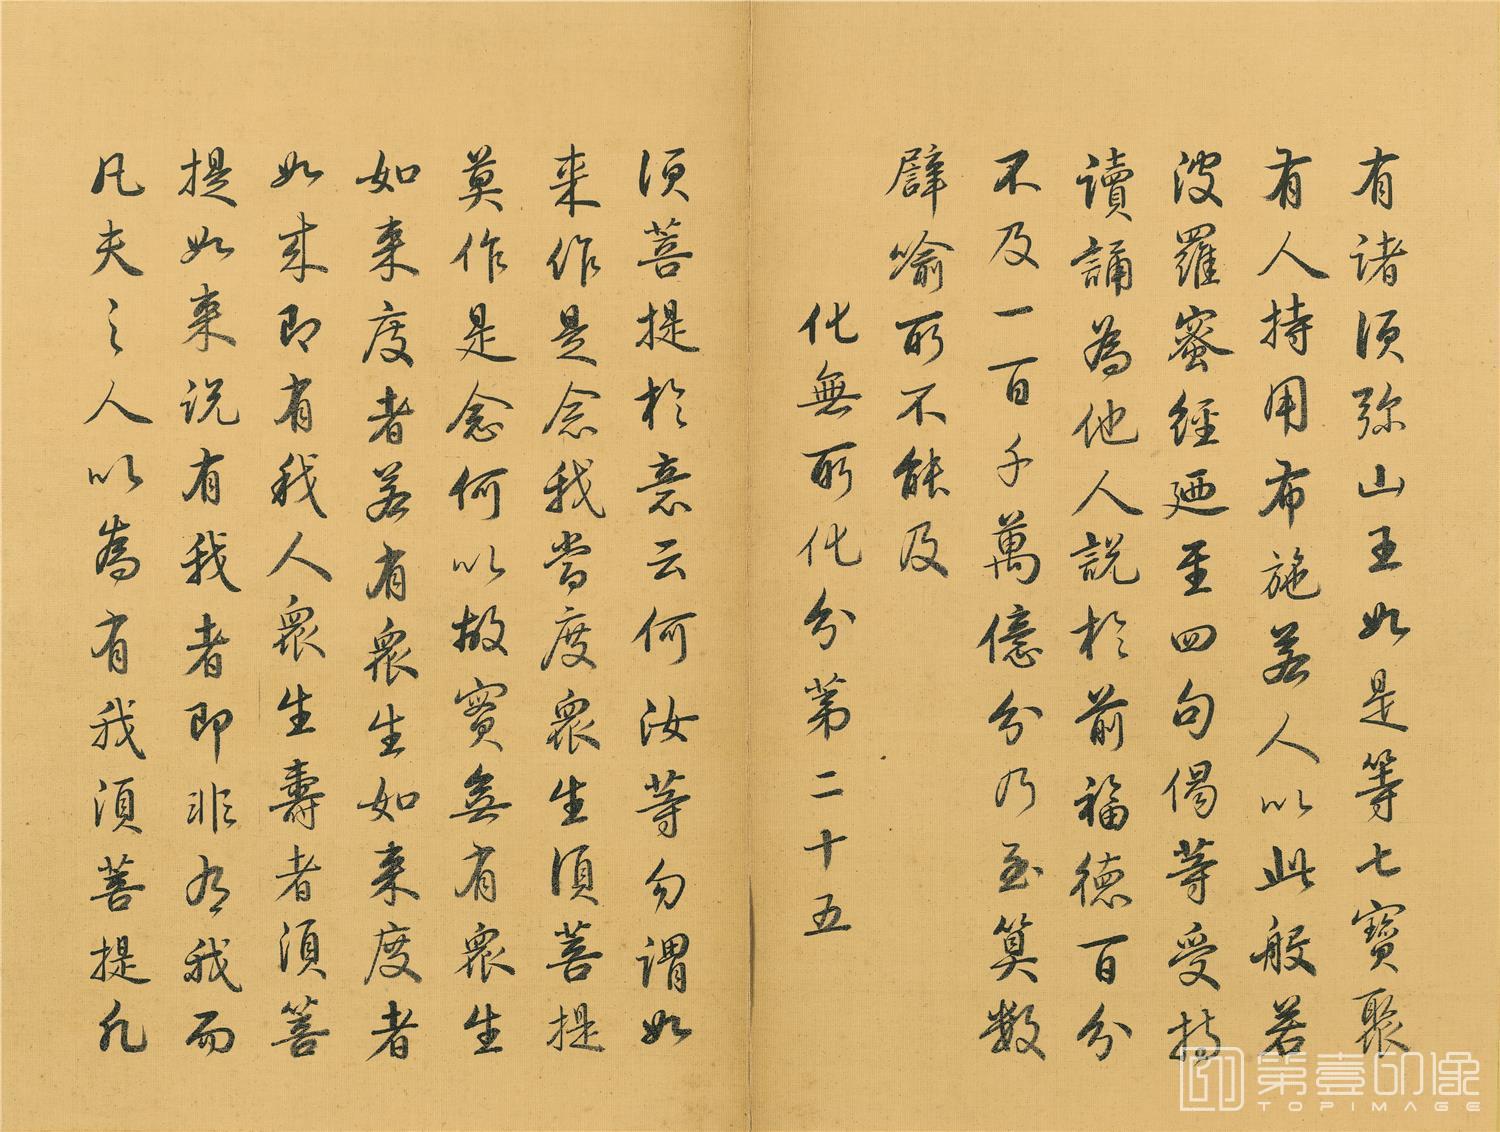 有諸須弥山王如是等七寶聚
有人持用布施若人以此般若
波羅蜜經廼至四句偈等受持
讀誦為他人說於前福德百分
不及一百千萬億分乃至算數
譬喻所不能及
化無所化分第二十五
須菩提於意云何汝等勿謂如
来作是念我當度衆生須菩提
莫作是念何以故實無有衆生
如来度者若有衆生如来度者
如来即有我人衆生壽者須菩
提如来说有我者即非有我而
凡夫之人以為有我須菩提凡
第壹印像
TOPIMAGE